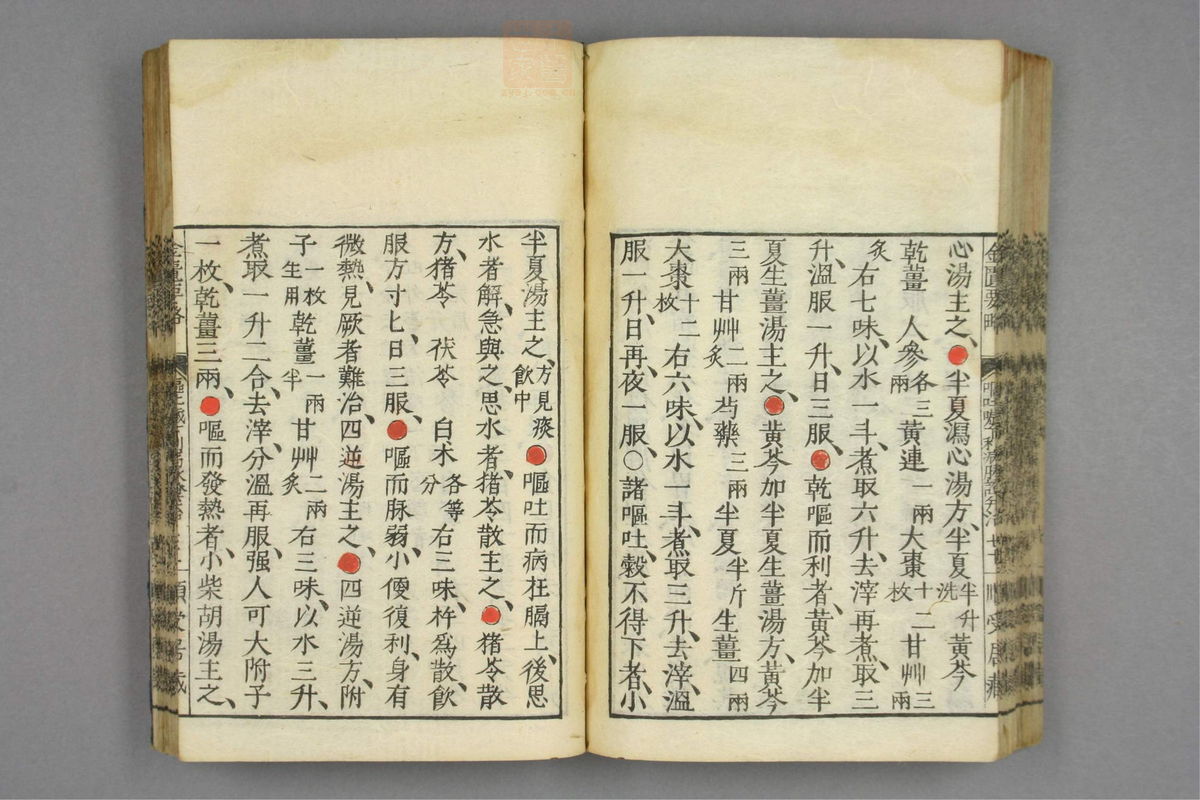 心湯主之、●半夏瀉心湯方、半夏半升洗黃芩
乾薑 人參各三兩黃連一兩大棗十二枚甘艸三兩
炙右七味、以水一斗、煮取六升、去滓再煮、取三
升、溫服一升、日三服、●乾嘔而利者、黃芩加半
夏生薑湯主之、●黃芩加半夏生薑湯方、黃芩
三兩甘艸炙二兩芍藥三兩半夏半斤生薑四兩
大棗十二枚右六味、以水一斗、煮取三升、去滓、溫
服一升、日再、夜一服、○諸嘔吐、穀不得下者、小
半夏湯主之、方見痰飲中●嘔吐而病在膈上、後思
水者解、急與之、思水者、猪苓散主之、●猪苓散
方、猪苓 茯苓 白朮各等分右三味、杵爲散、飲
服方寸匕、日三服、●嘔而脉弱、小便復利、身有
微熱、見厥者難治、四逆湯主之、●四逆湯方、附
子一枚生用乾薑一兩半甘艸二兩炙右三味、以水三升、
煮取一升二合、去滓、分溫再服、强人可大附子
一枚、乾薑三兩、●嘔而發熱者、小柴胡湯主之、
金匱要略